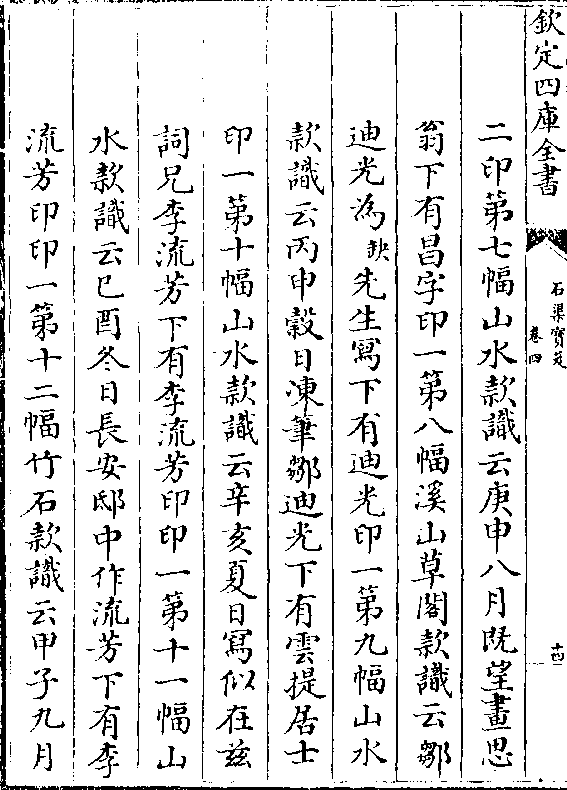 欽定四庫全書
石渠寶笈
卷四
十四
二印第七幅山水款識云庚申八月既望畫思
翁下有昌字印一第八幅溪山草閣款識云鄒
迪光為缺先生寫下有迪光印一第九幅山水
款識云丙申穀日凍筆鄒迪光下有雲提居士
印一第十幅山水款識云辛亥夏日寫似在兹
詞兄李流芳下有李流芳印印一第十一幅山
水款識云巳酉冬日長安邸中作流芳下有李
流芳印印一第十二幅竹石款識云甲子九月